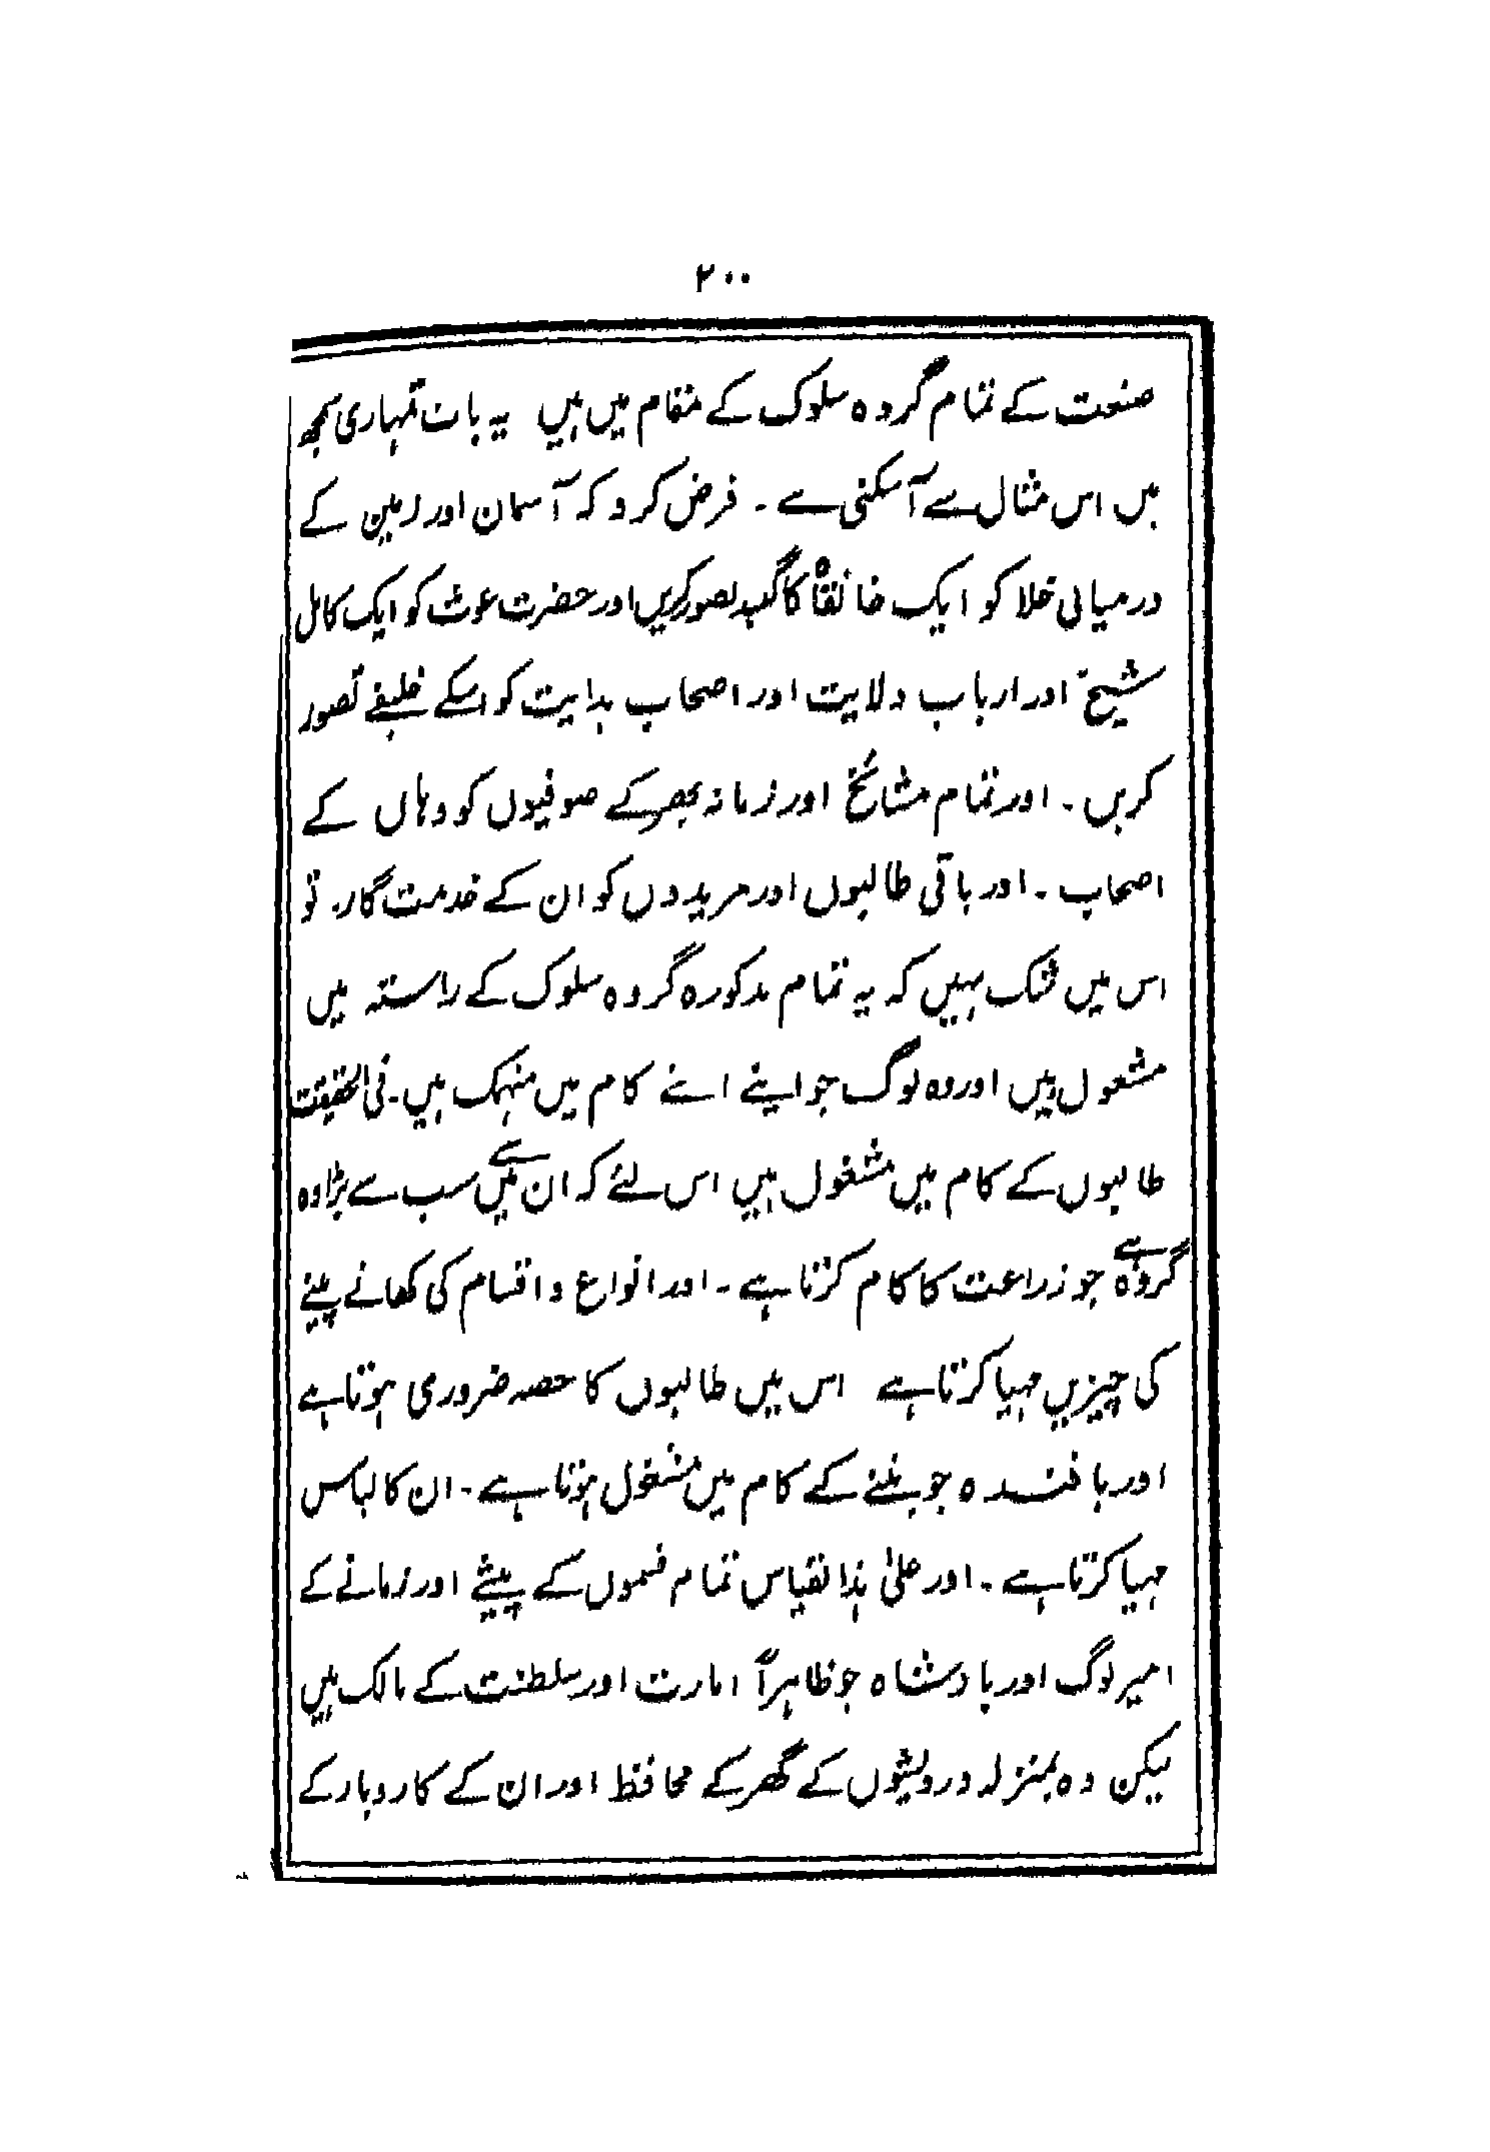 ۲۰۰
صنعت کے تمام گروہ سلوک کے مقام میں ہیں یہ بات تمہاری سمجھ
میں اس مثال سے آسکتی ہے ۔ فرض کرو کہ آسمان اور زمین کے
درمیانی خلا کو ایک خانقاہ کا گنبد تصور کریں اور حضرت غوث کو ایک کامل
شیخ اور ارباب ولایت اور اصحاب ہدایت کو اسکے خلیفے تصور
کریں ۔ اور تمام مشائخ اور زمانہ بھر کے صوفیوں کو وہاں کے
اصحاب ۔ اور باقی طالبوں اور مریدوں کو ان کے خدمت گار ۔ تو
اس میں شک نہیں کہ یہ تمام مذکورہ گروہ سلوک کے راستہ میں
مشغول ہیں اور وہ لوگ جو اپنے اپنے کام میں منہمک ہیں ۔ فی الحقیقت
طالبوں کے کام میں مشغول ہیں اس لئے کہ ان میں سے سب سے بڑا وہ
گروہ ہے جو زراعت کا کام کرتا ہے ۔ اور انواع و اقسام کی کھانے پینے
کی چیزیں مہیا کرتا ہے اس میں طالبوں کا حصہ ضروری ہوتا ہے
اور بافندہ جو بننے کے کام میں مشغول ہوتا ہے ۔ ان کا لباس
مہیا کرتا ہے ۔ اور علیٰ ہذا لقیاس تمام قسموں کے پیشے اور زمانے کے
امیر لوگ اور بادشاہ جو ظاہراً امارت اور سلطنت کے مالک ہیں
لیکن وہ بمنزلہ درویشوں کے گھر کے محافظ اور ان کے کاروبار کے